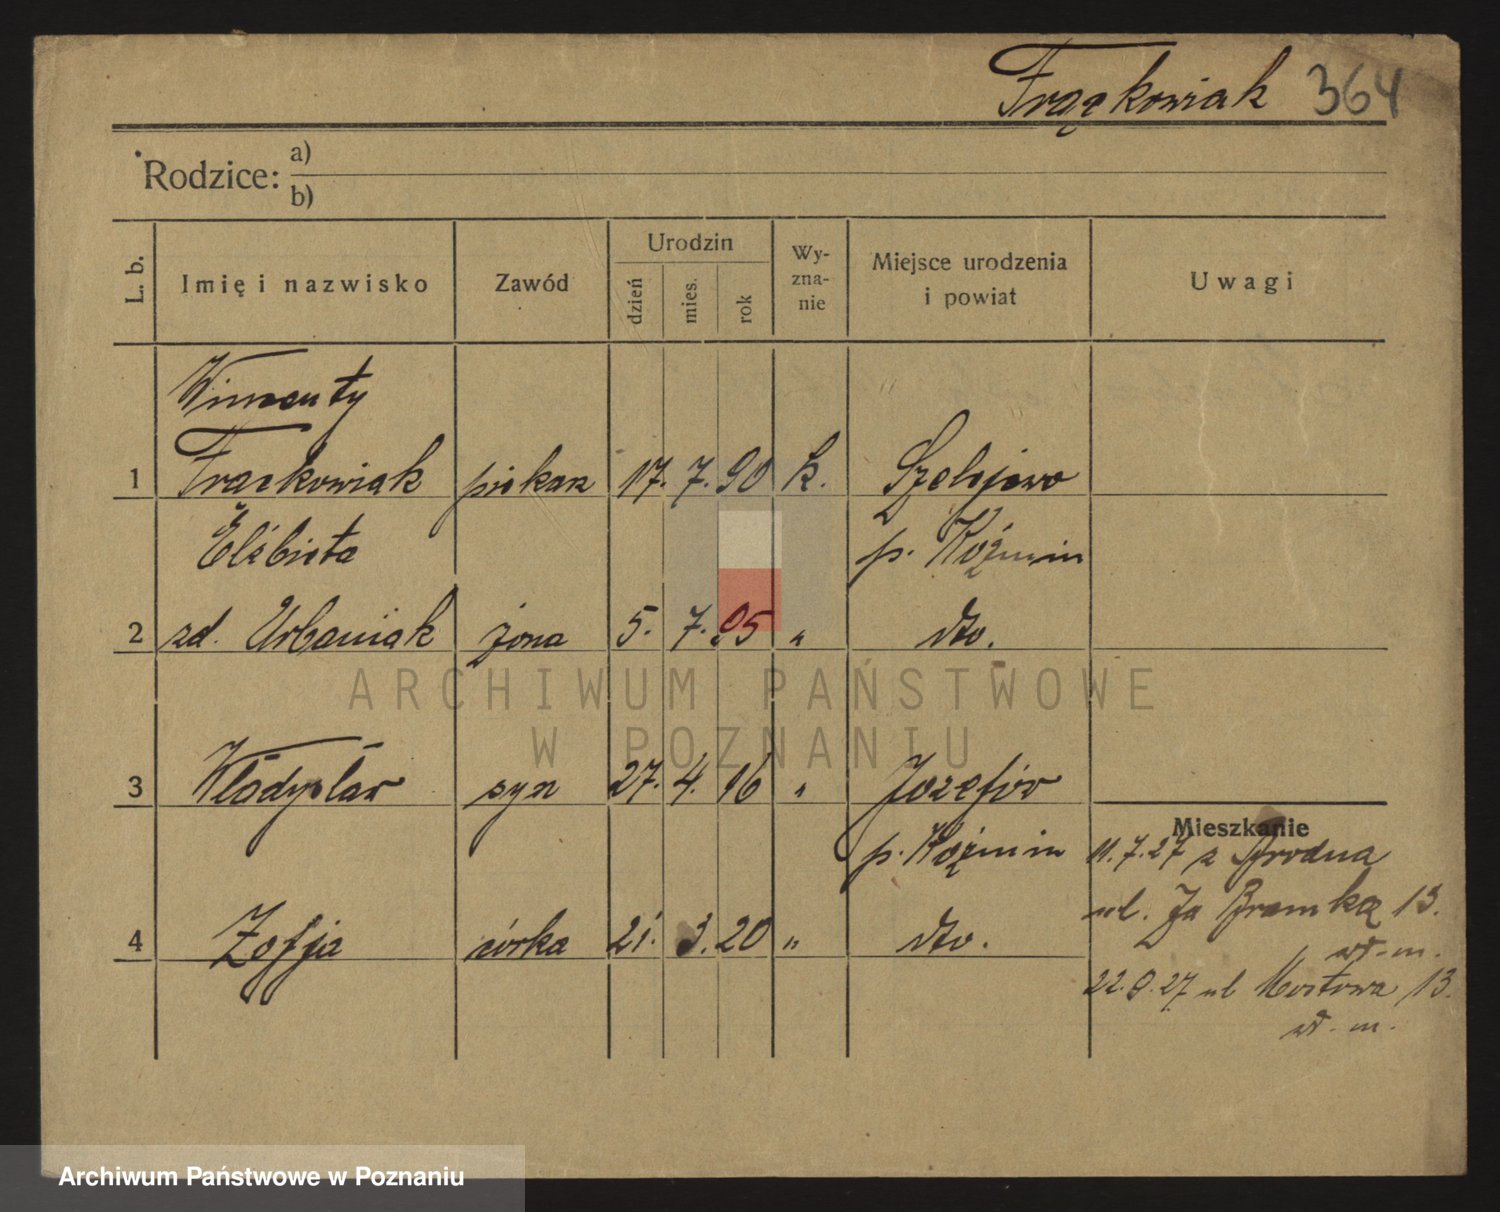 Frąckowiak 364
Rodzice: a)
b)
L. b.
Imię i nazwisko
Zawód
Urodzin
dzień
mies.
rok
Wy-
zna-
nie
Miejsce urodzenia
i powiat
Uwagi
Wincenty
1 Frąckowiak piekarz 17. 7. 90 k. Szelejewo
Elżbieta p. Koźmin
2 zd. Urbaniak żona 5. 7. 95 " dto.
ARCHIWUM PAŃSTWOWE
W POZNANIU
3 Władysław syn 27. 4. 16 " Józefów
Mieszkanie
p. Koźmin 11. 7. 27 z Brodna
ul. Za Bramką 13.
4 Zofja córka 21. 3. 20 " dto.
wł. m.
22. 9. 27 ul Mostowa 13.
wł. m.
Archiwum Państwowe w Poznaniu